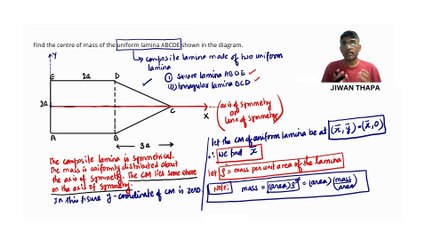 Find the centre of mass of the uniform lamina ABCDE shown in the diagram.
composite lamina made of two uniform
lamina
(i) square lamina ABDE
(ii) triangular lamina BCD
Y
E 2a D
2a
C
X
A B
3a
axis of symmetry
OR
line of symmetry
JIWAN THAPA
The composite lamina is symmetrical.
The mass is uniformly distributed about
the axis of symmetry. The CM lies some where
on the axis of symmetry.
In this figure y-coordinate of CM is zero.
let the CM of uniform lamina be at (x̄, ȳ) = (x̄, 0)
∴ We find x̄
let ρ = mass per unit area of the lamina
Note: mass = (area) ρ = (area) (mass/area)